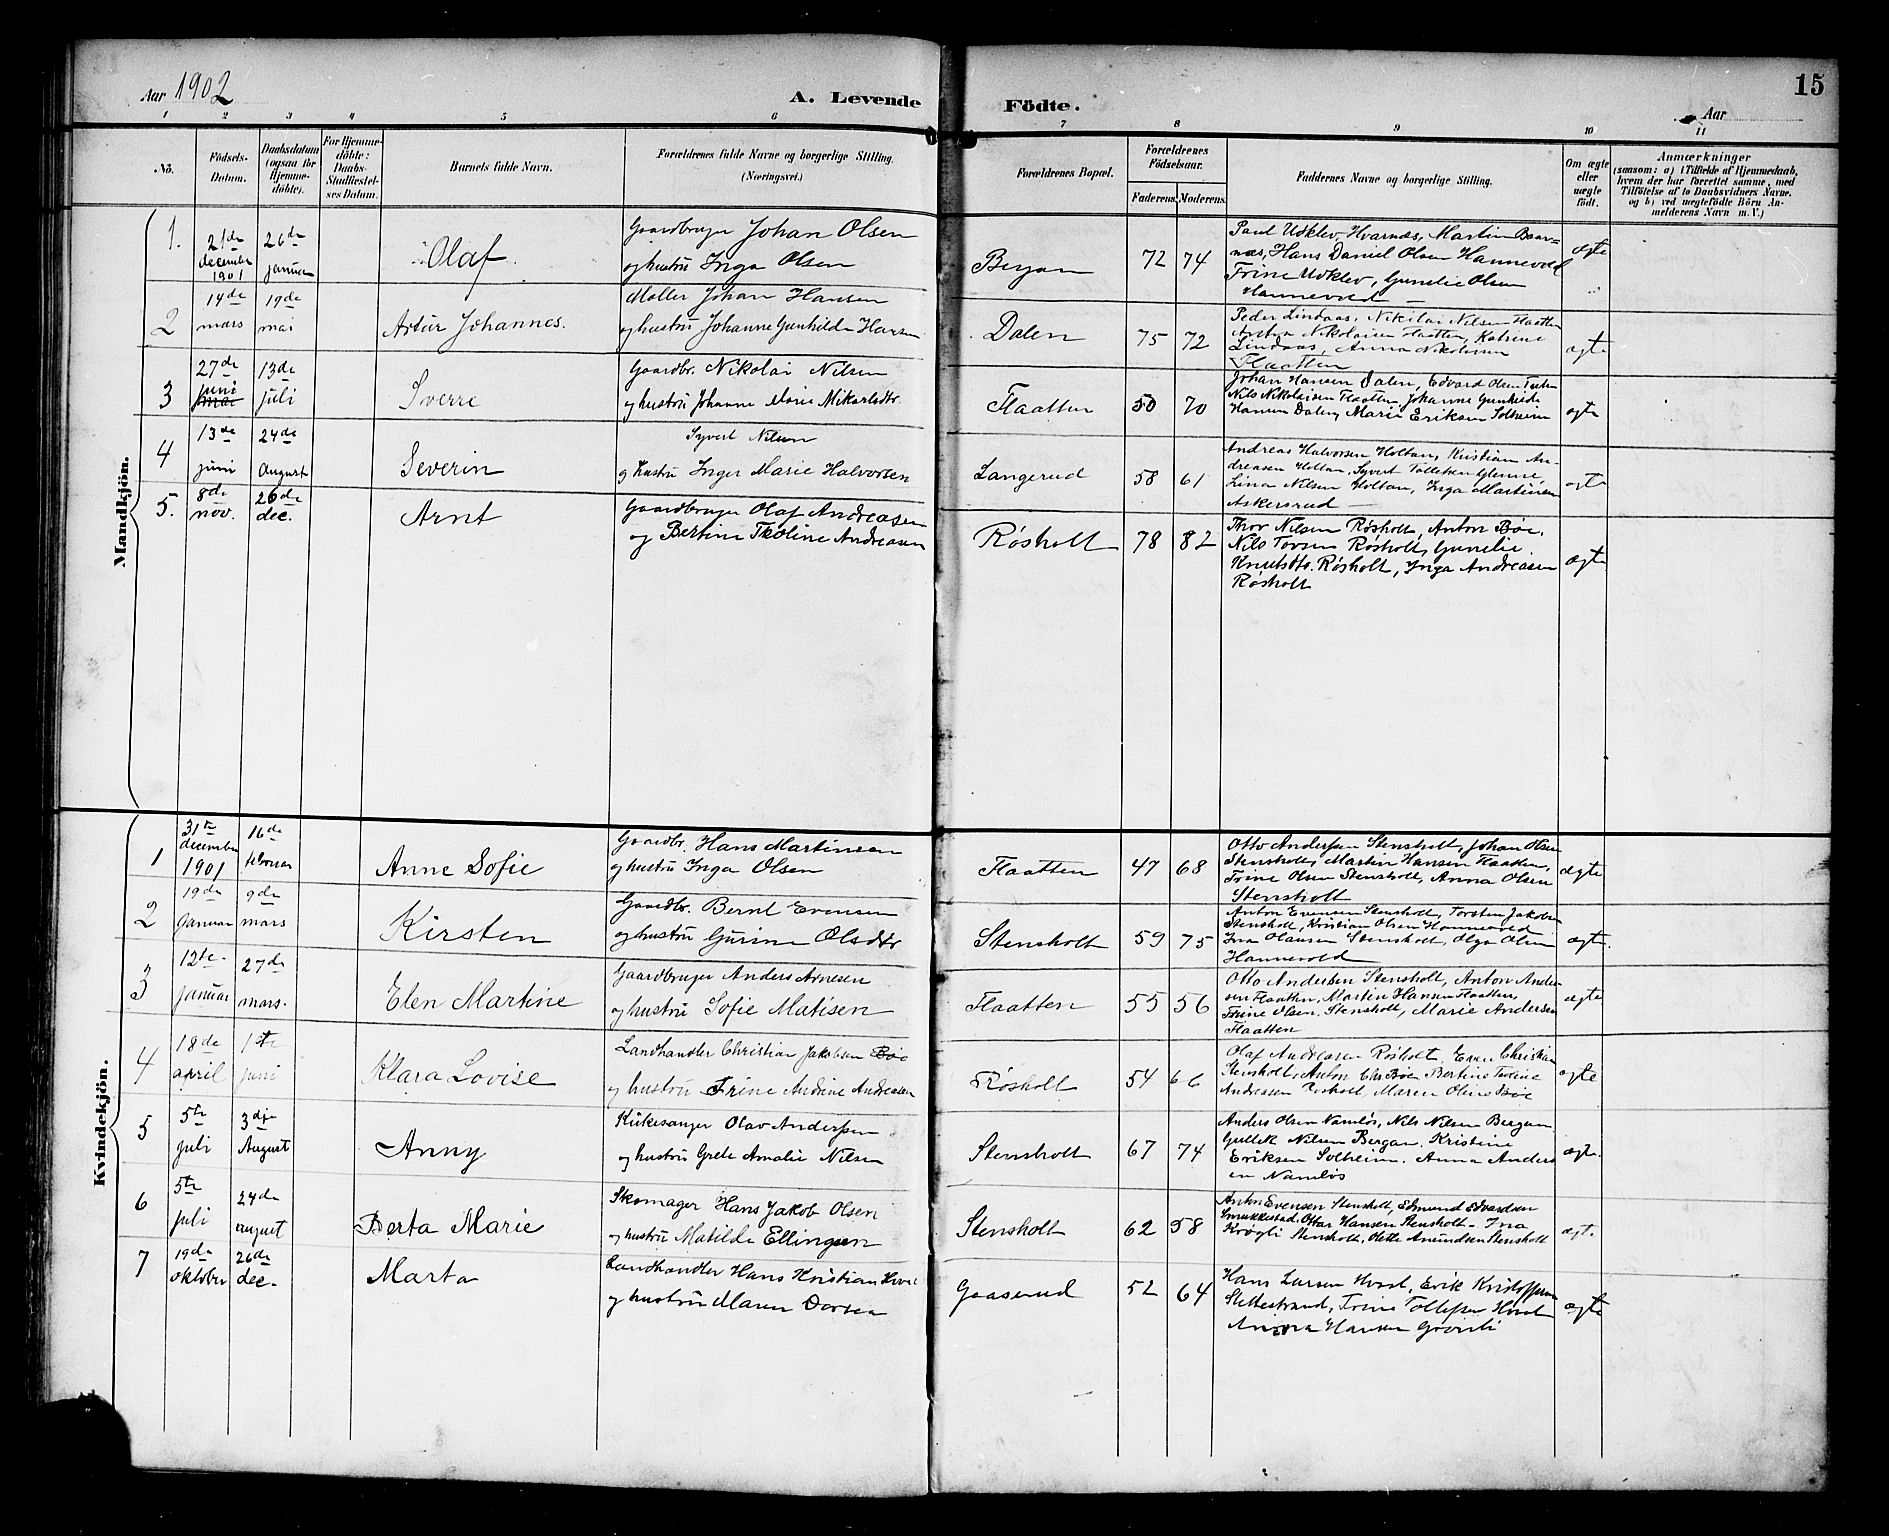 Aar 1902
A. Levende Födte.
Aar
15
1 2 3 4 5 6 7 8 9 10 11
No.
Födsels-Datum.
Daabsdatum (ogsaa for Hjemme-döbte).
For Hjemme-döbte: Daabs-Stadfæstel-ses Datum.
Barnets fulde Navn.
Forældrenes fulde Navne og borgerlige Stilling. (Næringsvei.)
Forældrenes Bopæl.
Forældrenes Födselsaar.
Faderens. Moderens.
Faddernes Navne og borgerlige Stilling.
Om ægte eller uægte födt.
Anmærkninger
(saasom: a) i Tilfælde af Hjemmedaab, hvem der har forrettet samme, med Tilföielse af to Daabsvidners Navne. og b) ved uegtefödte Börn An-melderens Navn m. V.)
Mandkjön.
1. 21de december 1901 26de januar Olaf
Gaardbruger Johan Olsen
og hustru Inga Olsen
Bergan 72 74
Paul Udklev Hvarnæs, Martin Baar-
næs, Hans Daniel Olsen Hannevold
Trine Udklev, Gunelie Olsen
Hannevold
ægte
2 14de mars 19de mai Artur Johannes.
Møller Johan Hansen
og hustru Johanne Gunhilde Hansen
Dalen 75 72
Peder Lindaas, Nikolai Nilsen Flaatten
Nikolaisen Flaatten, Katrine
Lindaas, Anna Nikolaisen
Flaatten
ægte
3 27de juni 13de juli Sverre
Gaardbr. Nikolai Nilsen
og hustru Johanne Marie Mikaelsdtr.
Flaatten 50 70
Johan Hansen Dalen, Edvard Olsen
Nils Nikolaisen Flaatten, Johanne Gunhilde
Hansen Dalen, Marie Eriksen Solheim
ægte
4 13de juni 24de August Severin
Syvert Nilsen
og hustru Inger Marie Halvorsen
Langerud 58 61
Andreas Halvorsen Holtan, Kristian An-
dreasen Holtan, Syvert Tollefsen Glenne,
Lina Nilsen Holtan, Inga Martinsen
Askersrud
ægte
5. 8de nov. 26de dec. Arnt
Gaardbruger Olaf Andreasen
og Bertine Tholine Andreasen
Røsholt 78 82
Thor Nilsen Røsholt, Anton Bøe,
Nils Torsen Røsholt, Gunelie
Knutsdtr. Røsholt, Inga Andreasen
Røsholt
ægte
Kvindekjön.
1 31te december 1901 16de februar Anne Sofie
Gaardbr. Hans Martinsen
og hustru Inga Olsen
Flaatten 47 68
Otto Andersen Stensholt, Johan Olsen
Stensholt, Martin Hansen Flaatten,
Trine Olsen Stensholt, Anna Olsen
Stensholt
ægte
2 19de januar 9de mars Kirsten
Gaardbr. Bernt Evensen
og hustru Gurine Olsdtr
Stensholt 59 75
Anton Evensen Stensholt, Torsten Jakobsen
Stensholt, Kristian Olsen Hannevold
Ina Olausen Stensholt, Olga Olsen
Hannevold
ægte.
3 12te januar 27de mars. Elen Martine
Gaardbruger Anders Arnesen
og hustru Sofie Matisen
Flaatten 55 56
Otto Andersen Stensholt, Anton Ander-
sen Flaatten, Martin Hansen Flaatten,
Trine Olsen Stensholt, Marie Andersen
Flaatten
ægte
4 18de april 1ste juni Klara Lovise
Landhandler Christian Jakobsen Bøe
og hustru Trine Andrine Andreasen
Røsholt 54 66
Olaf Andreasen Røsholt, Even Christian
Stensholt, Anton Chr Bøe Bertine Toline
Andreasen Røsholt, Maren Oline Bøe
ægte
5 5te juli 3die August Anny
Kirkesanger Olav Andersen
og hustru Grete Amalie Nilsen
Stensholt 67 74
Anders Olsen Namløs, Nils Nilsen Bergan
Gullek Nilsen Bergan, Kristine
Eriksen Solheim, Anna Anders
en Namløs
ægte.
6 5te juli 24de august Berta Marie
Skomager Hans Jakob Olsen
og hustru Matilde Ellingsen
Stensholt 62 58
Anton Evensen Stensholt, Edmund Edvardsen
Smukkestad, Ottar Hansen Stensholt - Ina
Krøgli Stensholt, Olette Amundsen Stensholt
ægte.
7 19de oktober 26de dec. Marta
Landhandler Hans Kristian Hvaal
og hustru Maren Dorsea
Gaaserud 52 64
Hans Larsen Hvaal, Erik Kristoffersen
Slettestrand, Trine Tollefsen Hvaal
Anna Hansen Grønli
ægte